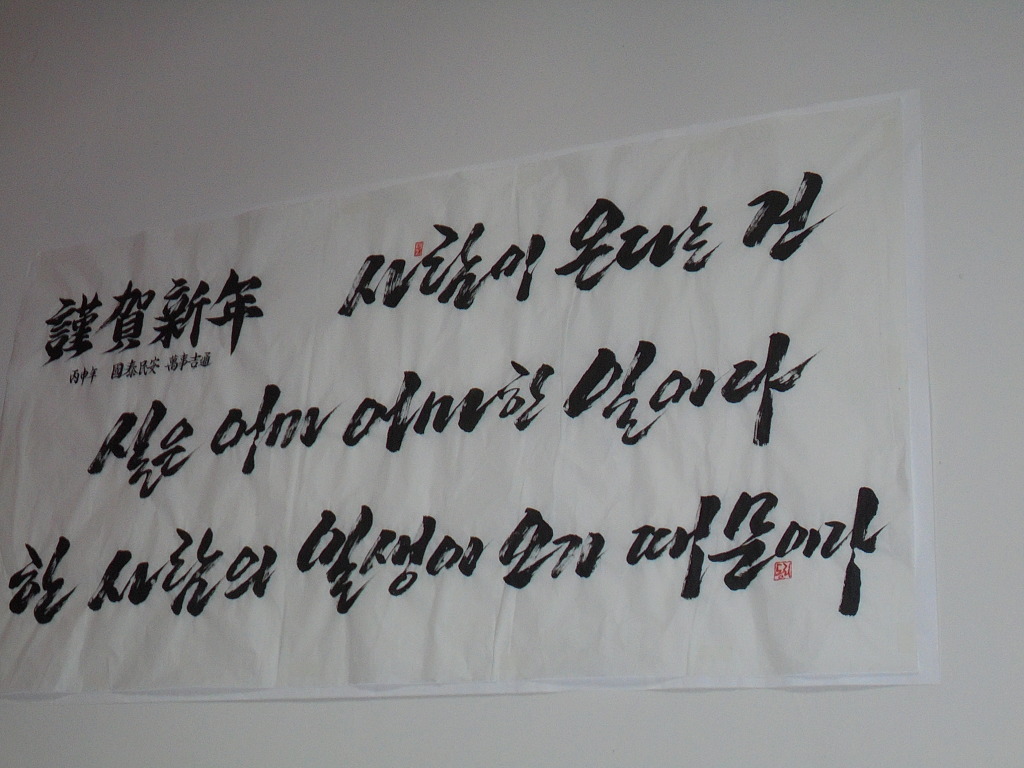 謹賀新年
丙申年 國泰民安 萬事吉通
사람이 온다는 건
실은 어마어마한 일이다
한 사람의 일생이 오기 때문이다